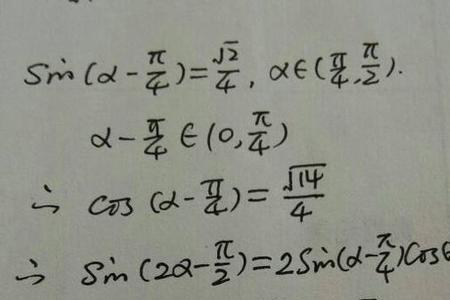 Sin(α-π/4)=√2/4, α∈(π/4,π/2).
α-π/4∈(0,π/4)
∴ cos(α-π/4)=√14/4
∴ Sin(2α-π/2)=2Sin(α-π/4)Cos